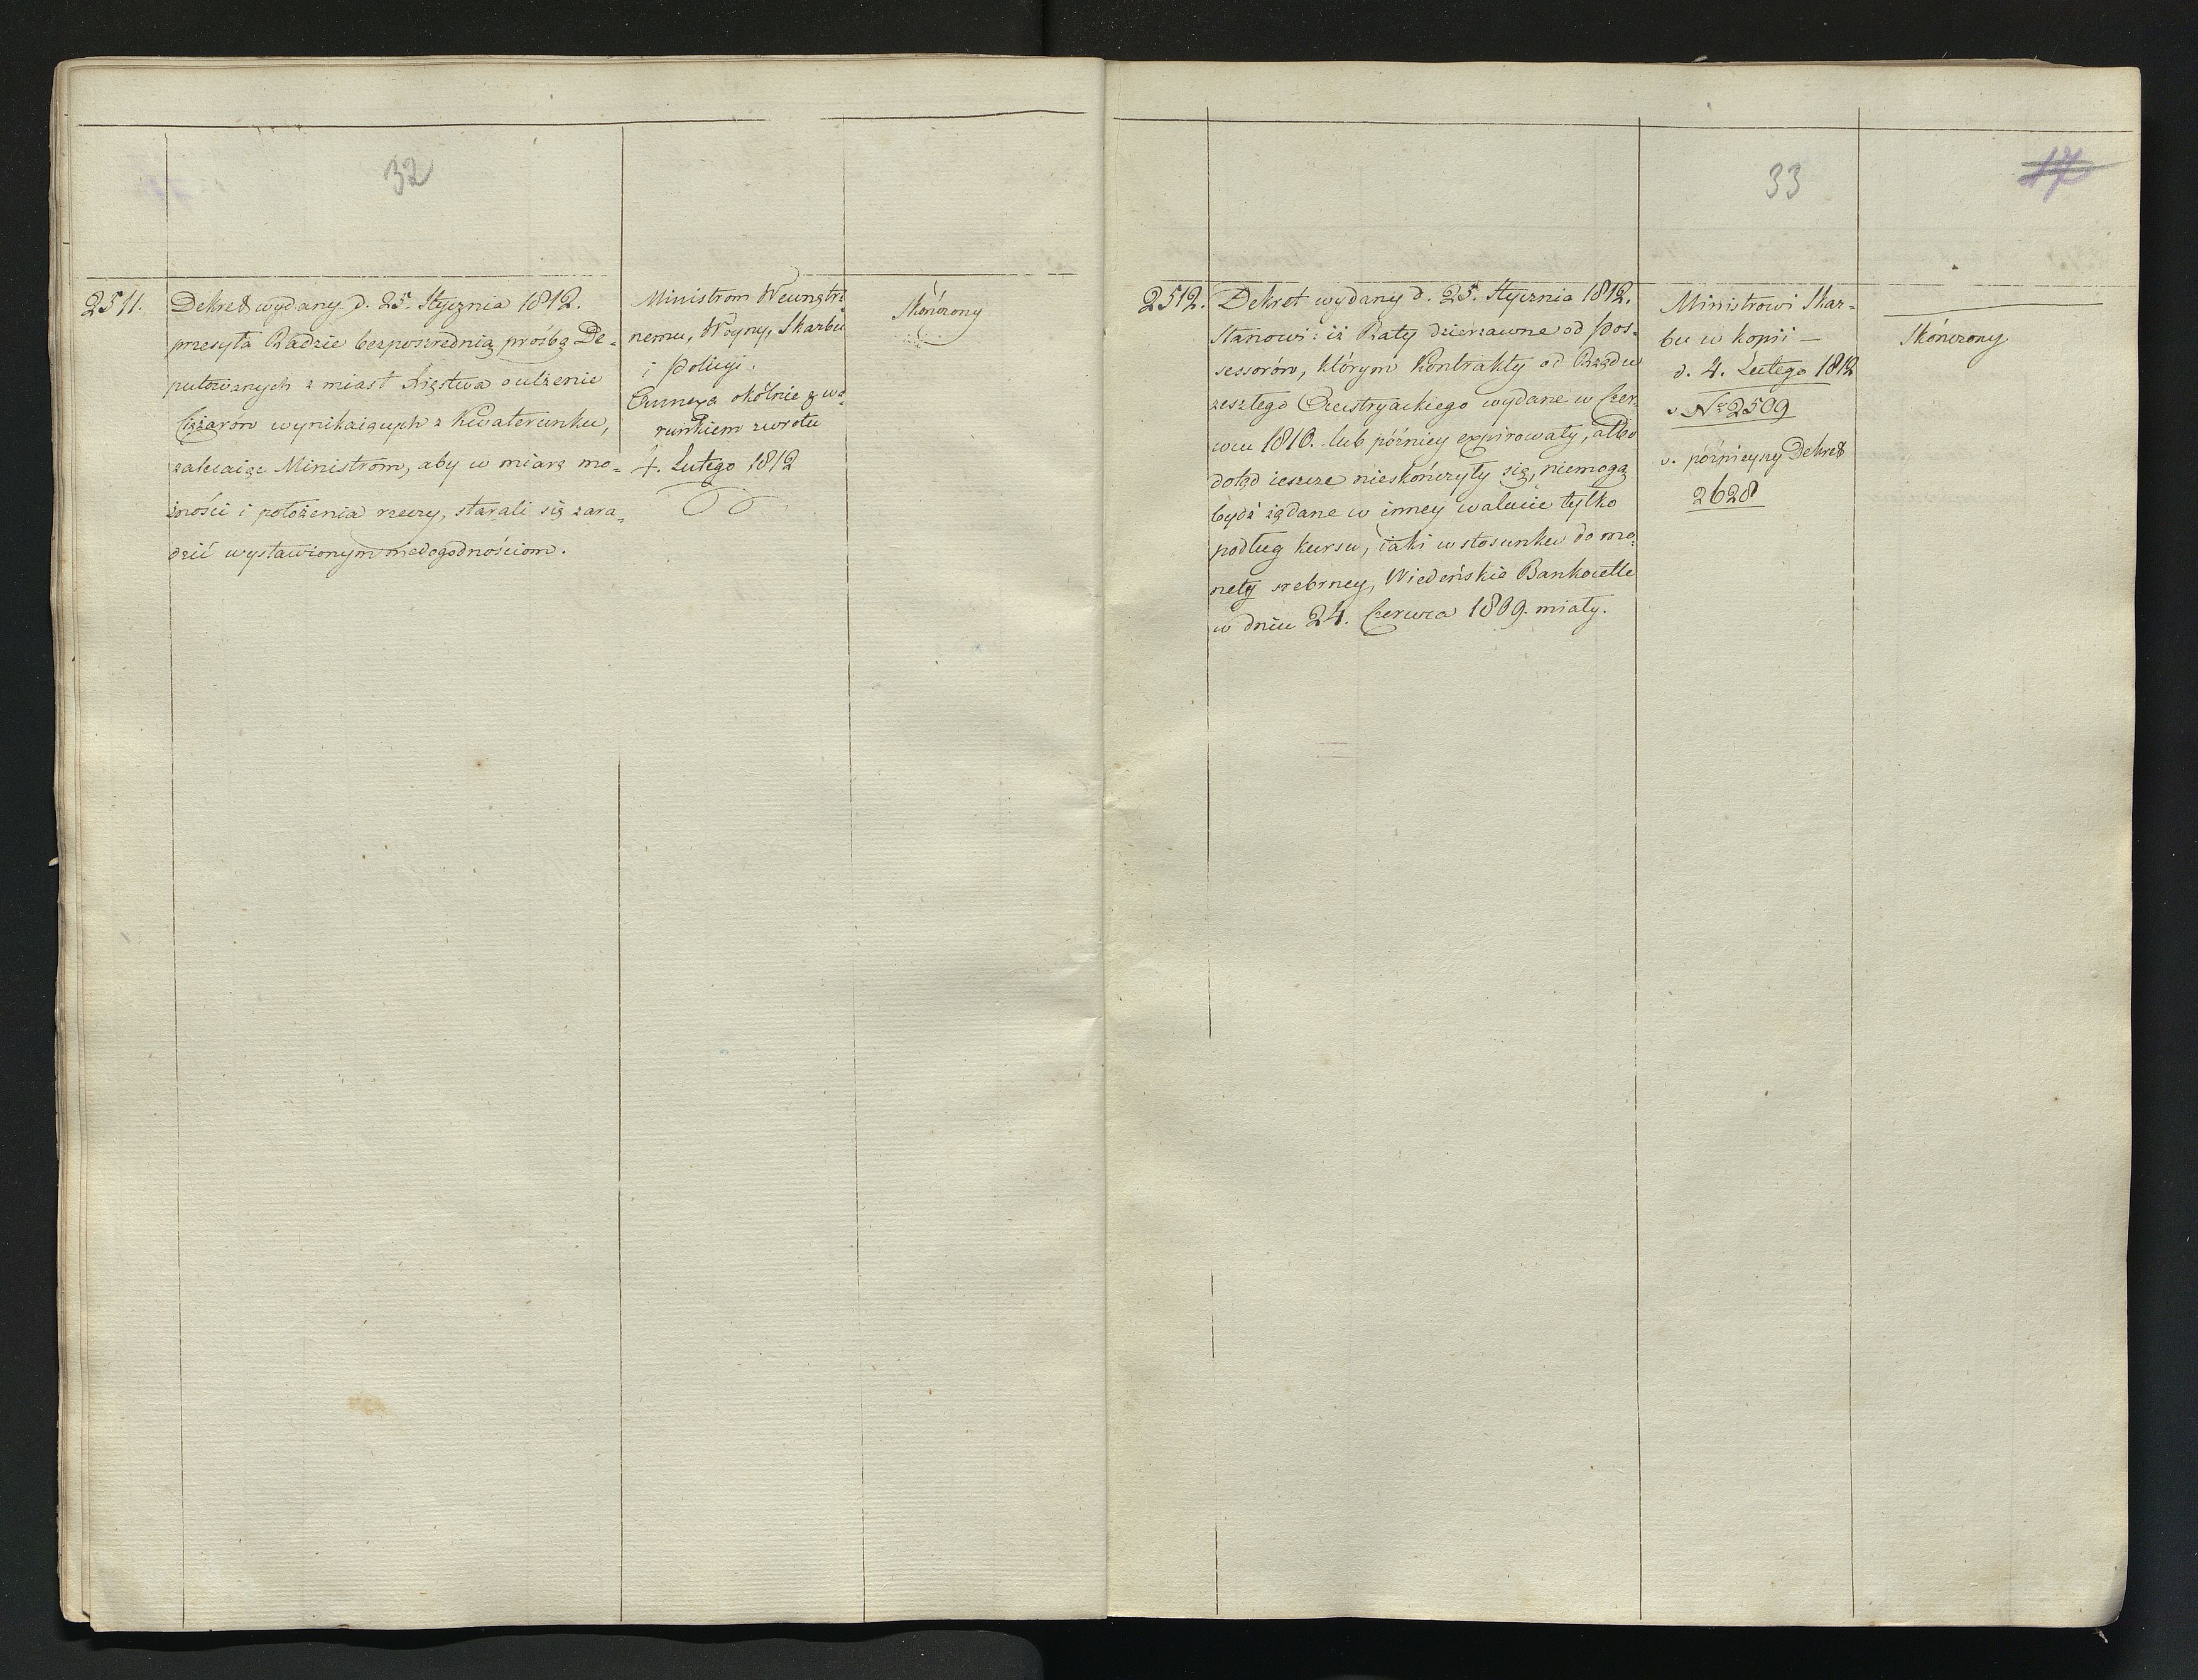 32
2511.
Dekret wydany d. 25. Stycznia 1812.
przesyła Radzie bezpośrednią prośbę De-
putowanych z miast Xięstwa o ulżenie
Ciężarów wynikaiących z Kwaterunku,
zalecaiąc Ministrom, aby w miarę mo-
żności i położenia rzeczy, starali się zara-
dzić wystawionym niedogodnościom.
Ministrom Wewnętrz-
nemu, Woyny, Skarbu
i Policyi.
okólnie z wa-
runkiem zwrotu
4. Lutego 1812
Skończony
33
17
2512.
Dekret wydany d. 25. Stycznia 1812.
Stanowi: iż Raty dzierżawne od Pos-
sessorów, którym Kontrakty od Rządu
zeszłego Austryackiego wydane w Czer-
wcu 1810. lub później expirowały, albo
dotąd ieszcze nieskończyły się, niemogą
bydź żądane w inney walucie tylko
podług kursu, iaki w stosunku do mo-
nety srebrney, Wiedeńskie Bankocetle
w dniu 24. Czerwca 1809. miały.
Ministrowi Skar-
bu w kopii —
d. 4. Lutego 1812
v. No 2509
v. późnieyszy Dekret
2628
Skończony